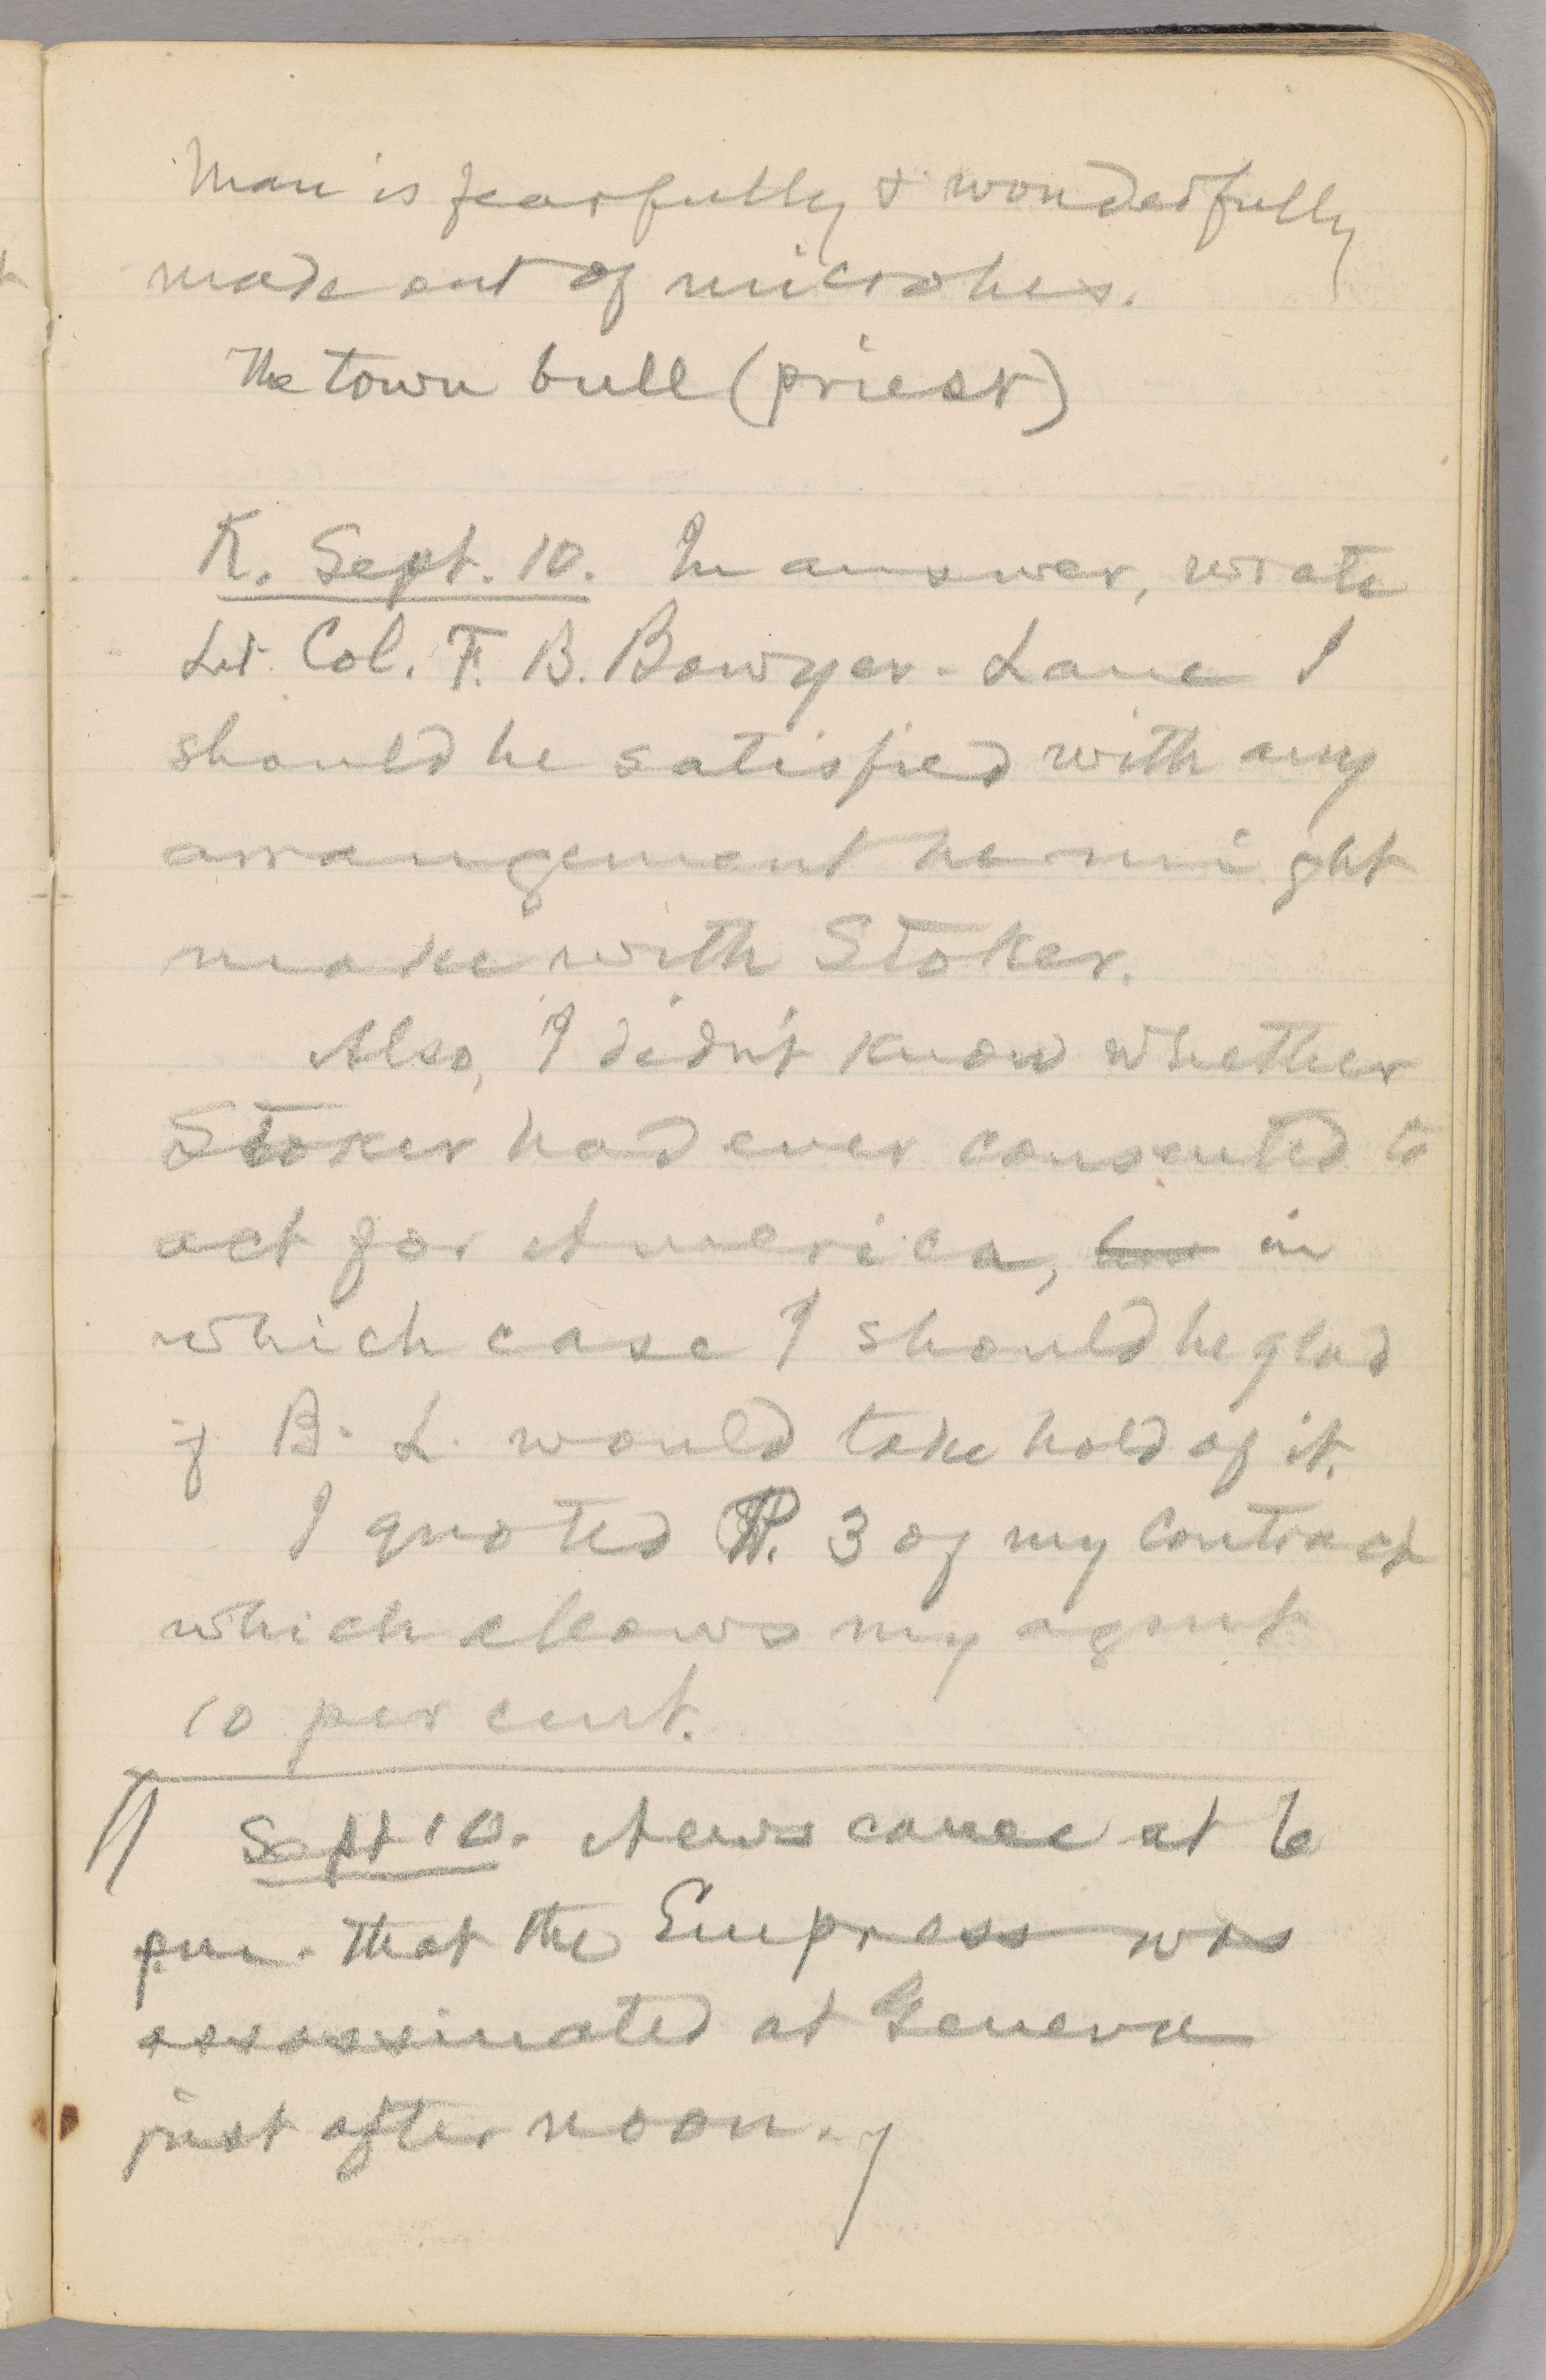 Man is fearfully & wonderfully
made out of microbes.
The town bull (priest)
K. Sept. 10. In answer, wrote
Lt. Col. F. B. Bowyer-Lane I
should be satisfied with any
arrangement he might
make with Stoker.
Also, I didn't know whether
Stoker had ever consented to
act for America, in
which case I should be glad
if B. L. would take hold of it.
I quoted P. 3 of my contract
which allows my agent
10 per cent.
Sept 10. News came at 6
p.m. that the Empress was
assassinated at Geneva
just after noon.